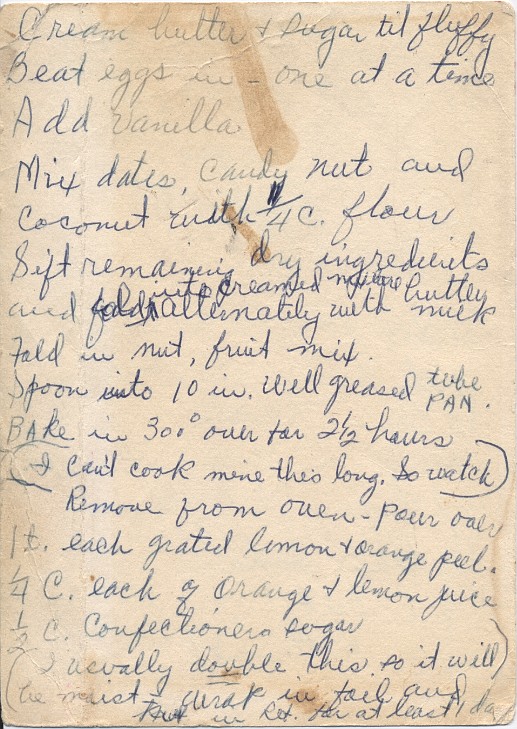 Cream butter & sugar til fluffy
Beat eggs in - one at a time
Add vanilla
Mix dates, candy nut and
Coconut with 1/4 C. flour
Sift remaining dry ingredients
into creamed mixture
and fold alternately with buttermilk
Fold in nut, fruit mix.
Spoon into 10 in. Well greased tube PAN.
BAKE in 300° oven for 2 1/2 hours
(I can't cook mine this long. So watch)
Remove from oven - Pour over
1 t. each grated lemon & orange peel.
1/4 C. each of Orange & lemon juice
1/2 C. Confectioners sugar
(I usually double this so it will
be moist - wrap in foil and
put in Ref. for at least 1 day